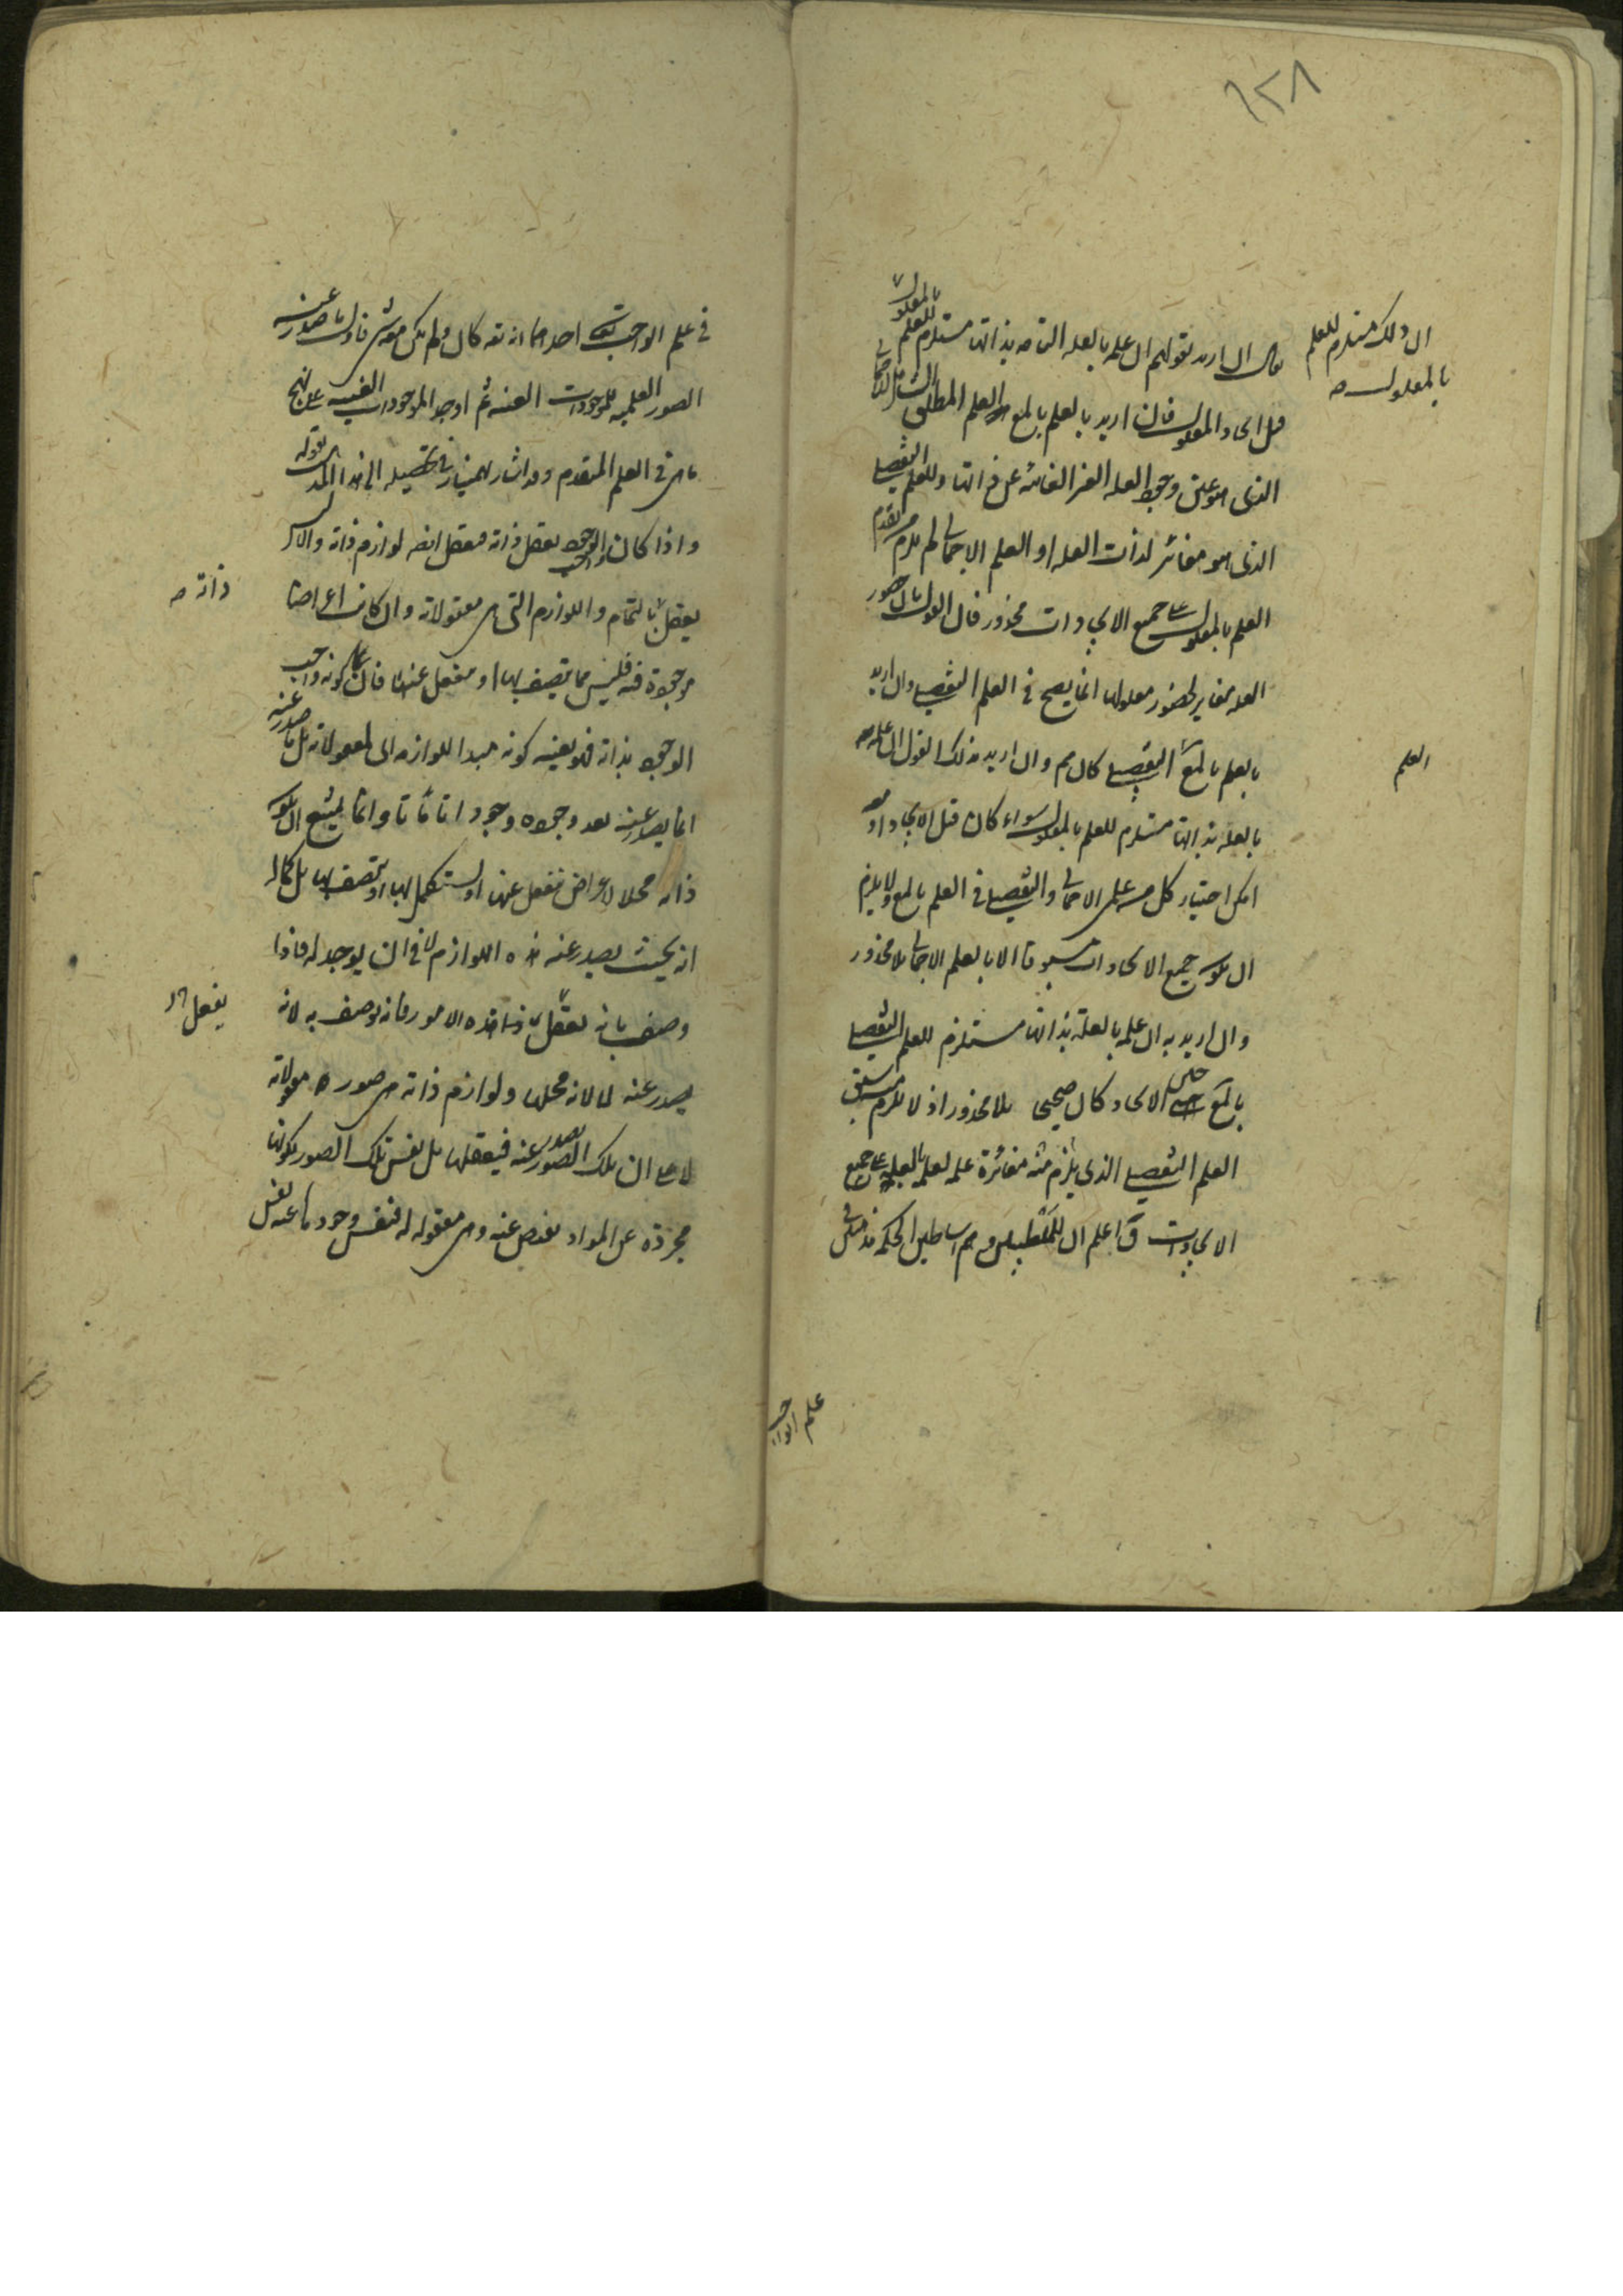 ٦٢٨
ان ذلك مستلزم للعلم
بالمعلول صه
بالمعلول
ان اريد بقولهم ان علمه بالعلة التامه بذاتها مستلزم للعلم
قبل ايجاد المعلول فان اريد بالعلم بالمع العلم المطلق الشامل للاجمالى
الذى هو عين وجود العله الغير الغائبه عن ذاتها وللعلم التفصيلى
الذى هو مغائر لذات العله او العلم الاجمالى لم يلزم من تقدم
العلم بالمعلول على جميع الايجادات محذور فان القول بان حضور
العله مغاير لحضور معلولها انما يصح فى العلم التفصيلى وان اريد
بالعلم بالمع التفصيلى كان مم وان اريد بذلك القول ان علمه
العلم
بالعله بذاتها مستلزم للعلم بالمعلول سواء كان قبل الايجاد او معه
امكن اختيار كل من علمى الاجمالى والتفصيلى فى العلم بالمع ولا يلزم
ان يكون جميع الايجادات مسبوقا الا بالعلم الاجمالى بلا محذور
وان اريد به ان علمه بالعلة بذاتها مستلزم للعلم التفصيلى
بالمع حين الايجاد كان صحيحا بلا محذور اذ لا يلزم سبق
العلم التفصيلى الذى يلزم منه مغائرة علمه لعلمه بالعله على جميع
الايجادات ق اعلم ان للمتفلسفين وهم اساطين الحكمه مذهبان فى
علم الواجب
فى علم الواجب تعالى احدهما انه تعه كان ولم يكن معه شئ فاول ما صدر عنه
الصور العلميه للموجودات العينيه ثم اوجد الموجودات العينيه على نهج
ما هى فى العلم المتقدم وقد اشار بهمنيار فى تحصيله الى هذا المذهب بقوله
واذا كان الواجب الوجود يعقل ذاته فيعقل ايضه لوازم ذاته والا ليس
يعقل بالتمام واللوازم التى هى معقولاته وان كانت اعراضا
ذاته صه
موجودة فيه فليس مما يتصف بها او ينفعل عنها فان كونه واجب
الوجود بذاته هو بعينه كونه مبدا للوازمه اى لمعقولاته بل ما يصدر عنه
انما يصدر عنه بعد وجوده وجودا تاما وانما يمتنع ان يكون
ذاته محلا لاعراض ينفعل عنها او يستكمل بها او يتصف بها بل كماله
انه بحيث يصدر عنه هذه اللوازم لا فى ان يوجد له فاذا
وصف بانه يعقل هذه الامور فانه يوصف به لانه
يصدر عنه لا لانه محلها ولوازم ذاته هى صور معقولاته
لا على ان تلك الصور يصدر عنه فيعقلها بل نفس تلك الصور لكونها
مجردة عن المواد يفيض عنه وهى معقوله له فنفس وجودها عنه نفس